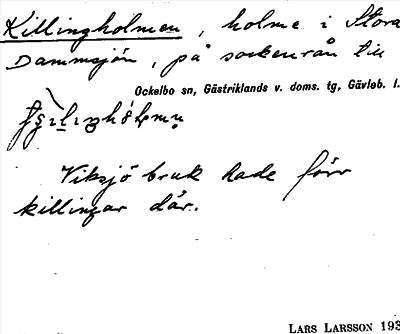 Killingholmen, holme i Stora
Dammsjön, på sockenrån till
Ockelbo sn, Gästriklands v. doms. tg, Gävleb. l.
Viksjö bruk hade förr
killingar där.
LARS LARSSON 193